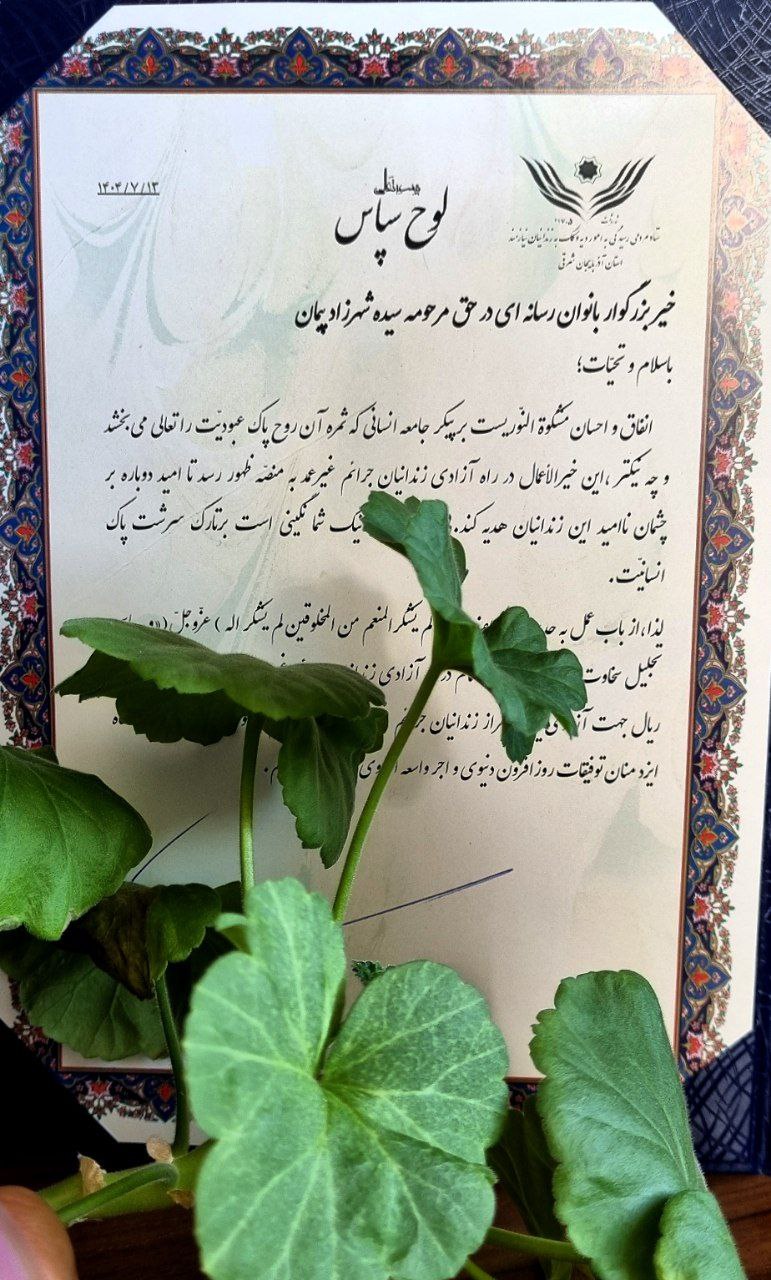 بسمه تعالی
لوح سپاس
۱۴۰۴/۷/۱۳
ستاد مردمی رسیدگی به امور دیه و کمک به زندانیان نیازمند
استان آذربایجان شرقی
خیر بزرگوار بانوان رسانه ای در حق مرحومه سیده شهرزاد پیمان
باسلام و تحیّات؛
انفاق و احسان مشکوة النّوریست بر پیکر جامعه انسانی که ثمره آن روح پاک عبودیّت را تعالی می بخشد
و چه نیکتر ،این خیرالأعمال در راه آزادی زندانیان جرائم غیرعمد به منصّه ظهور رسد تا امید دوباره بر
چشمان ناامید این زندانیان هدیه کند. نیک شما نگینی است برتارک سرشت پاک
انسانیّت.
لذا،از باب عمل به لم یشکر المنعم من المخلوقین لم یشکر اله ) عزّوجلّ
تجلیل سخاوت آزادی
ریال جهت نفر از زندانیان
ایزد منان توفیقات روزافزون دنیوی و اجر واسعه